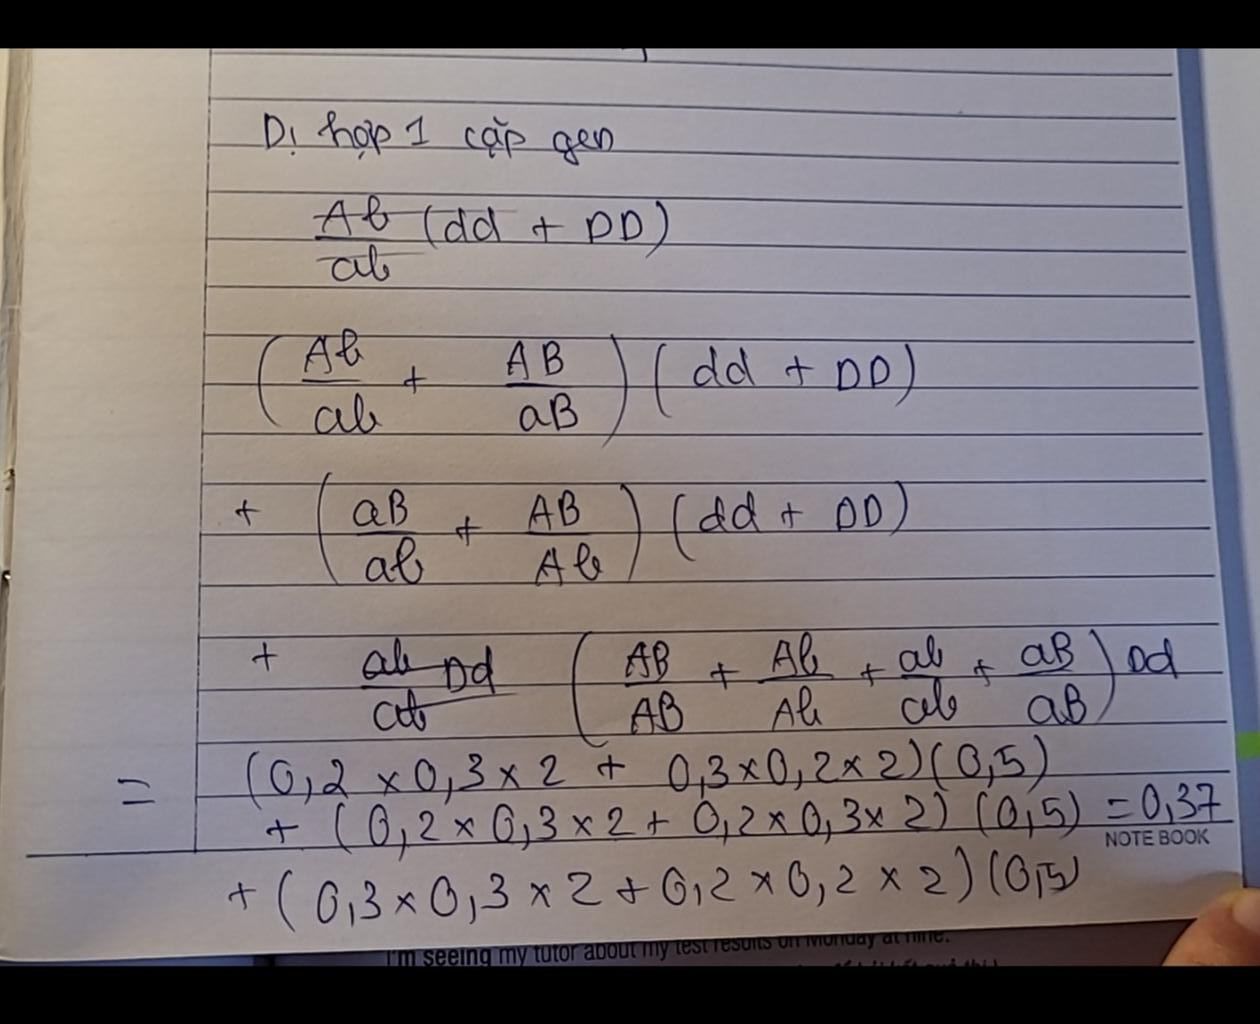 Dị hợp 1 cặp gen
Ab/ab (dd + DD)
(Ab/ab + AB/aB) (dd + DD)
+ (aB/ab + AB/Ab) (dd + DD)
+ ab/ab Dd (AB/AB + Ab/Ab + ab/ab + aB/aB) Dd
= (0,2 x 0,3 x 2 + 0,3 x 0,2 x 2) (0,5)
+ (0,2 x 0,3 x 2 + 0,2 x 0,3 x 2) (0,5) = 0,37
NOTE BOOK
+ (0,3 x 0,3 x 2 + 0,2 x 0,2 x 2) (0,5)
I'm seeing my tutor about my test results on Monday at nine.